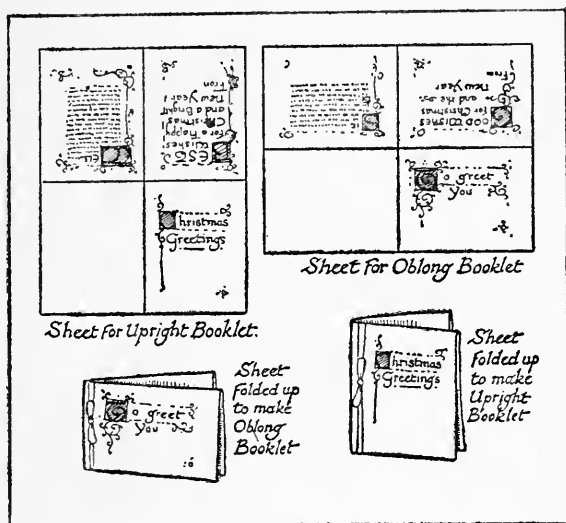 EST
Wishes
for a Happy
Christmas
and a Bright
New Year!
From
hristmas
Greetings
Sheet for Upright Booklet.
OOD WISHES
for Christmas
and the
New Year
From
o greet
you
Sheet for Oblong Booklet
o greet
you
Sheet
folded up
to make
Oblong
Booklet
hristmas
Greetings
Sheet
folded up
to make
Upright
Booklet